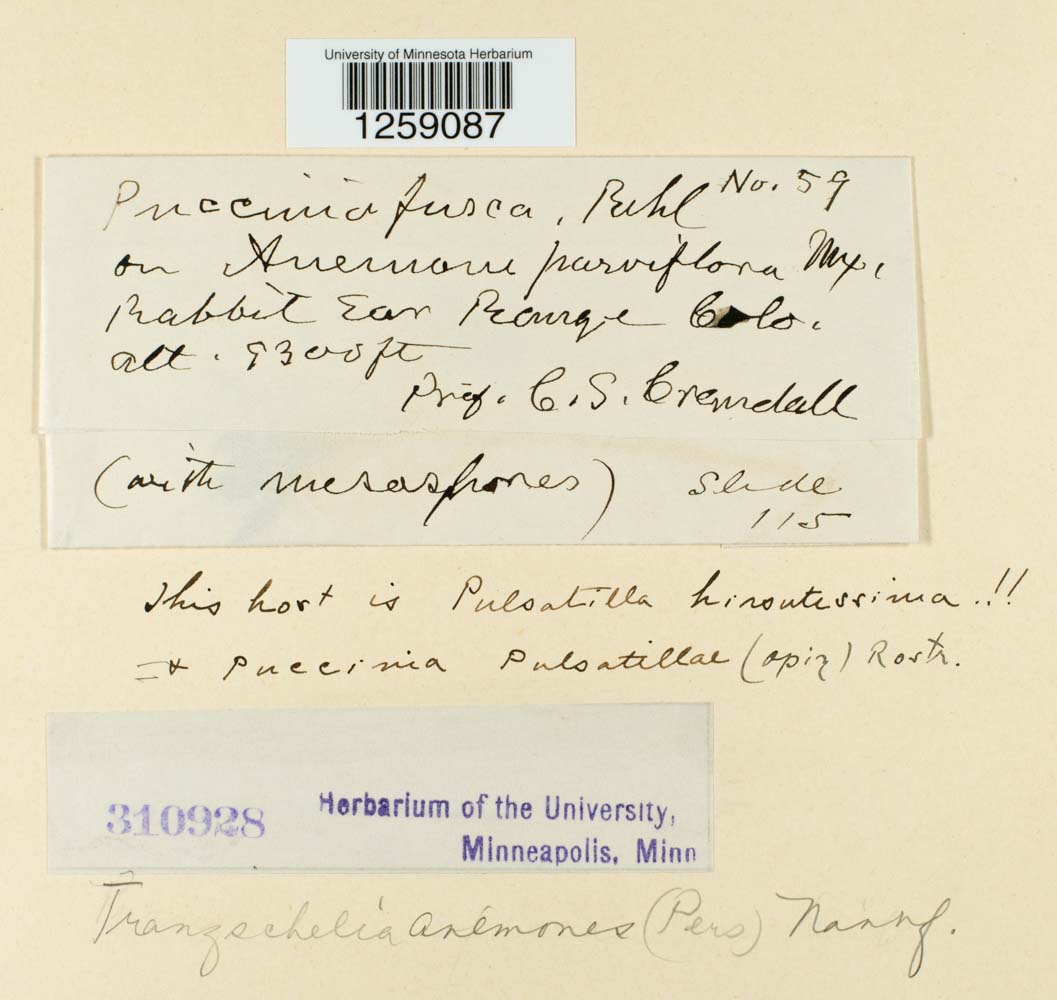 University of Minnesota Herbarium
1259087
Puccinia fusca, Rehl No. 59
on Anemone parviflora Mx.
Rabbit Ear Range Colo.
alt. 9300ft
Prof. C. S. Crandall
(with mesospores) Slide
115
This host is Pulsatilla hirsutissima.!!
Puccinia Pulsatillae (opiz) Rostr.
310928 Herbarium of the University,
Minneapolis, Minn
Tranzschelia anemones (Pers) Nannf.